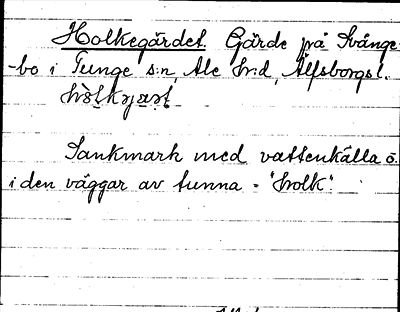 Holkegärdet. Gärde på Svänge-
-bo i Tunge s:n, Ale hrd, Älfsborgs l.
Sankmark med vattenkälla o.
i den väggar av tunna = "holk".